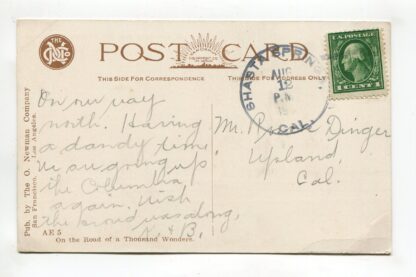 POST CARD
THIS SIDE FOR CORRESPONDENCE
THIS SIDE FOR ADDRESS ONLY
Pub. by The O. Newman Company
San Francisco. Los Angeles.
On our way
north. Having
a dandy time
we are going up
the Columbia
again. Wish
the crowd was along.
K & B.
AE 5
On the Road of a Thousand Wonders.
SHASTA SPRINGS
AUG
12
P.M
CAL.
U.S. POSTAGE
1 CENT 1
Mr. Dinger
Upland,
Cal.